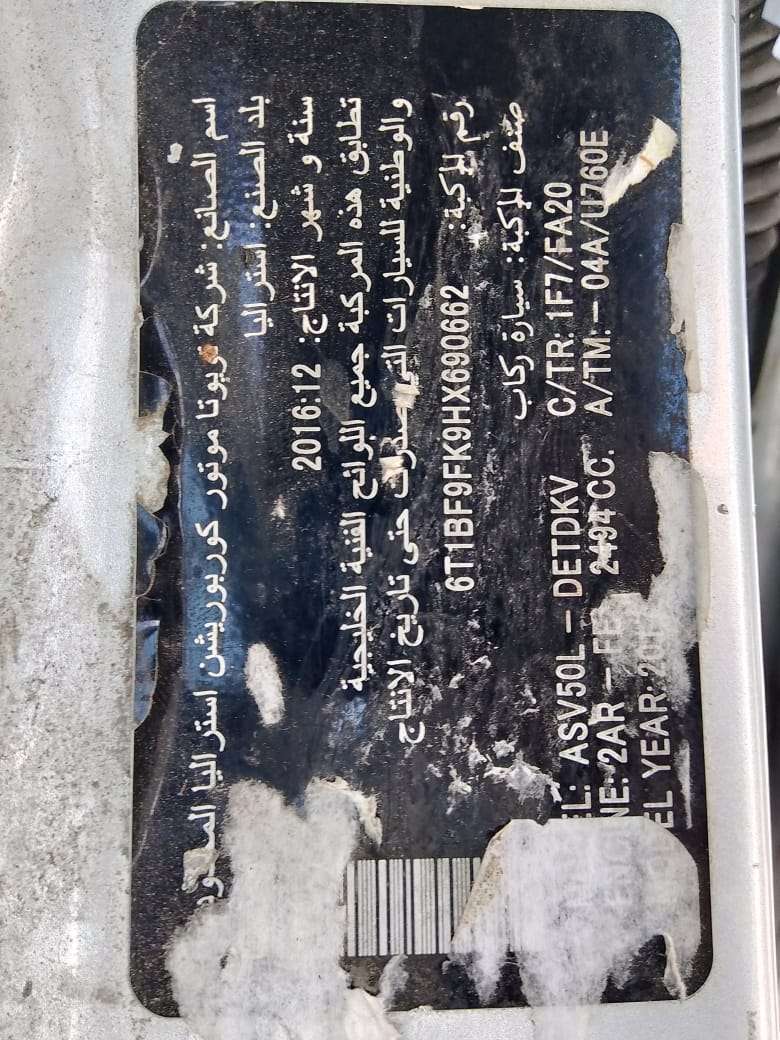 اسم الصانع: شركة تويوتا موتور كوربوريشن استراليا
بلد الصنع: استراليا
سنة و شهر الانتاج: 2016:12
تطابق هذه المركبة جميع اللوائح الفنية الخليجية
والوطنية للسيارات التي صدرت حتى تاريخ الانتاج
رقم المركبة: 6T1BF9FK9HX690662
صنف المركبة: سيارة ركاب
ASV50L - DETDKV C/TR: 1F7/FA20
2AR - FE 2494 CC. A/TM: - 04A/U760E
YEAR: